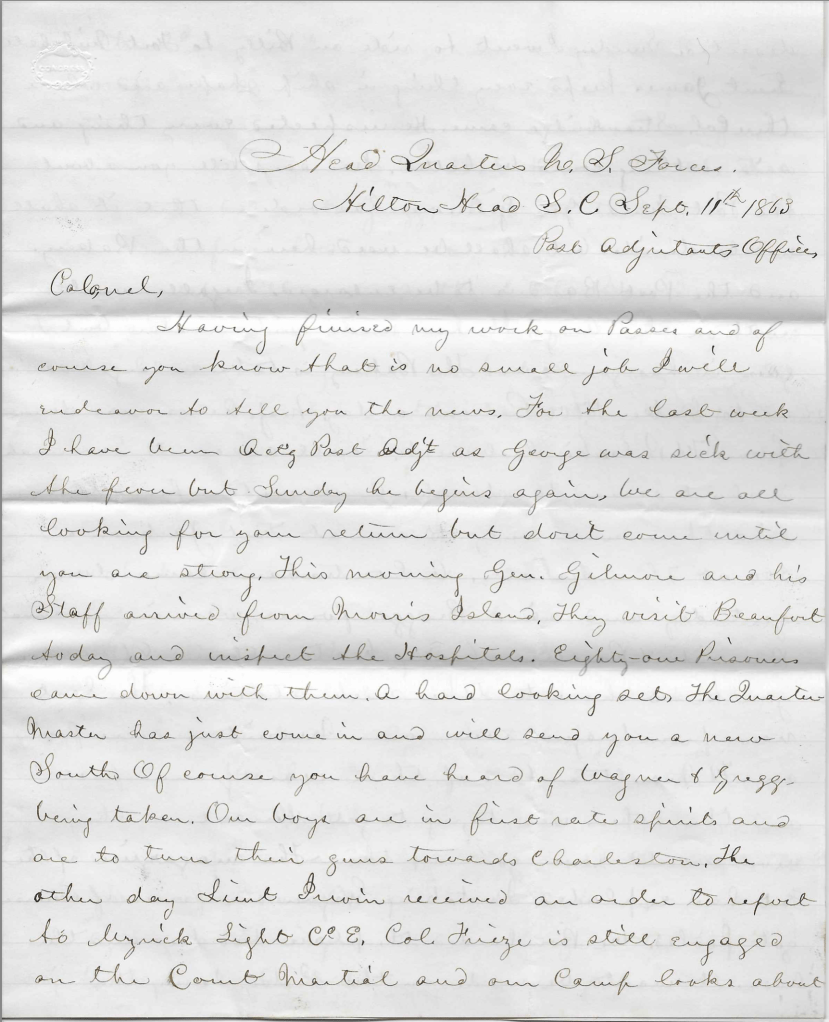 Head Quarters U. S. Forces.
Hilton Head S. C. Sept. 11th 1863
Post Adjutants Office,
Colonel,
Having finised my work on Passes and of
course you know that is no small job I will
endeavor to tell you the news. For the last week
I have been Act'g Post Adj't as George was sick with
the fever but Sunday he begins again. We are all
looking for your return but don't come until
you are strong. This morning Gen. Gilmore and his
Staff arrived from Morris Island. They visit Beaufort
today and inspect the Hospitals. Eighty-one Prisoners
came down with them. A hard looking set. The Quarter
Master has just come in and will send you a new
South. Of course you have heard of Wagner & Gregg
being taken. Our boys are in first rate spirits and
are to turn their guns towards Charleston. The
other day Lieut Irwin received an order to report
to Light Co E. Col. Frieze is still engaged
on the Court Martial and our Camp looks about